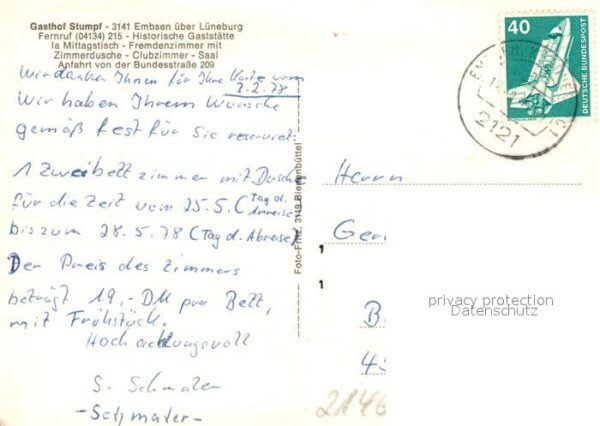 Gasthof Stumpf - 3141 Embsen über Lüneburg
Fernruf (04134) 215 - Historische Gaststätte
Ia Mittagstisch - Fremdenzimmer mit
Zimmerdusche - Clubzimmer - Saal
Anfahrt von der Bundesstraße 209
Wir danken Ihnen für Ihre Karte vom
7.2.78
Wir haben Ihrem Wunsche
gemäß fest für Sie reserviert:
1 Zweibettzimmer mit Dusche
für die Zeit vom 25.5. (Tag d. Anreise
bis zum 28.5.78 (Tag d. Abreise)
Der Preis des Zimmers
beträgt 19,- DM pro Bett,
mit Frühstück.
Hochachtungsvoll
S. Schmater
- Schmater -
Foto-Fritz, 3119 Bienenbüttel
40
DEUTSCHE BUNDESPOST
2121
Herrn
privacy protection
Datenschutz